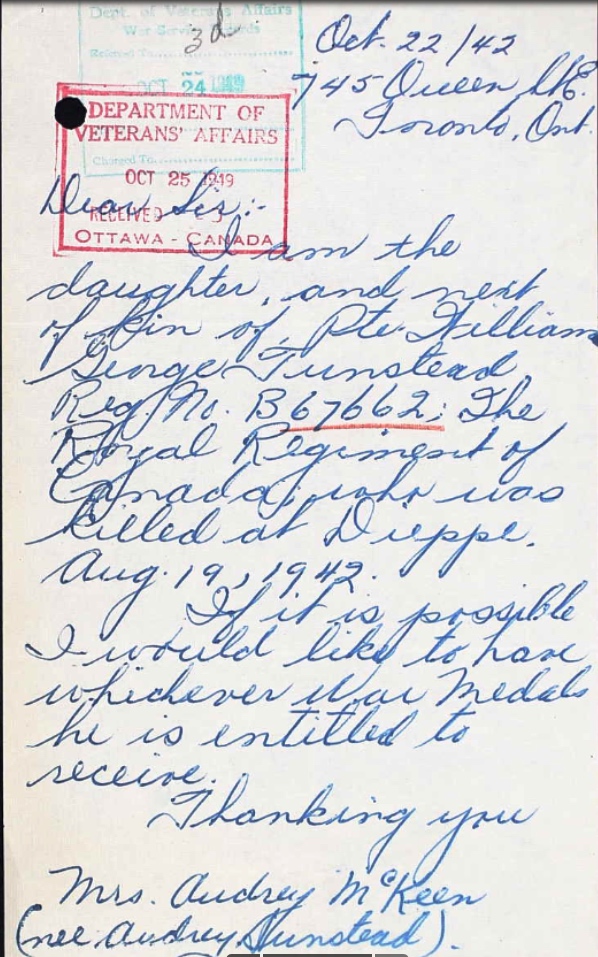 Dept. of Veterans Affairs
War Service Records
Referred To
OCT 24 1949
Charged To
3d
DEPARTMENT OF
VETERANS' AFFAIRS
OCT 25 1949
RECEIVED
OTTAWA - CANADA
Oct. 22/42
745 Queen St E.
Toronto, Ont.
Dear Sir:-
I am the
daughter, and next
of kin of, Pte. William
George Tunstead
Reg. No. B67662; The
Royal Regiment of
Canada, who was
killed at Dieppe.
Aug. 19, 1942.
If it is possible
I would like to have
whichever War Medals
he is entitled to
receive.
Thanking you
Mrs. Audrey McKeen
(nee Audrey Tunstead).